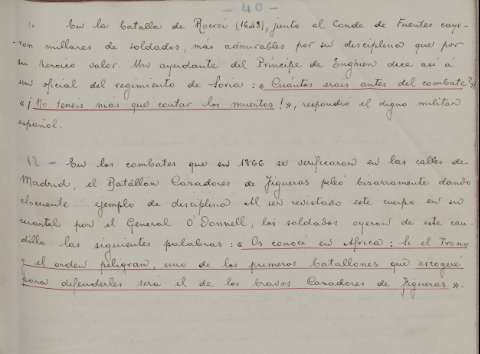 - 40 -
En la batalla de Rocroi (1643), junto al Conde de Fuentes caye-
ron millares de soldados, más admirables por su disciplina que por
su heroico valor. Un ayudante del Príncipe de Enghien dice así á
un oficial del regimiento de Soria: «¿Cuántos erais antes del combate?»
«¡No teneis más que contar los muertos!», respondió el digno militar
español.
12 - En los combates que en 1866 se verificaron en las calles de
Madrid, el Batallón Cazadores de Figueras peleó bizarramente dando
elocuente ejemplo de disciplina. Al ser revistado este cuerpo en su
cuartel por el General O'Donnell, los soldados oyeron de este cau-
dillo las siguientes palabras: «Os conocí en Africa; si el Trono
y el orden peligran, uno de los primeros batallones que escogeré
para defenderles será el de los bravos Cazadores de Figueras».